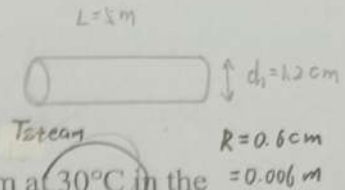 d₁=1.2 cm
Tsteam
R = 0.6 cm
at 30°C in the
= 0.006 m